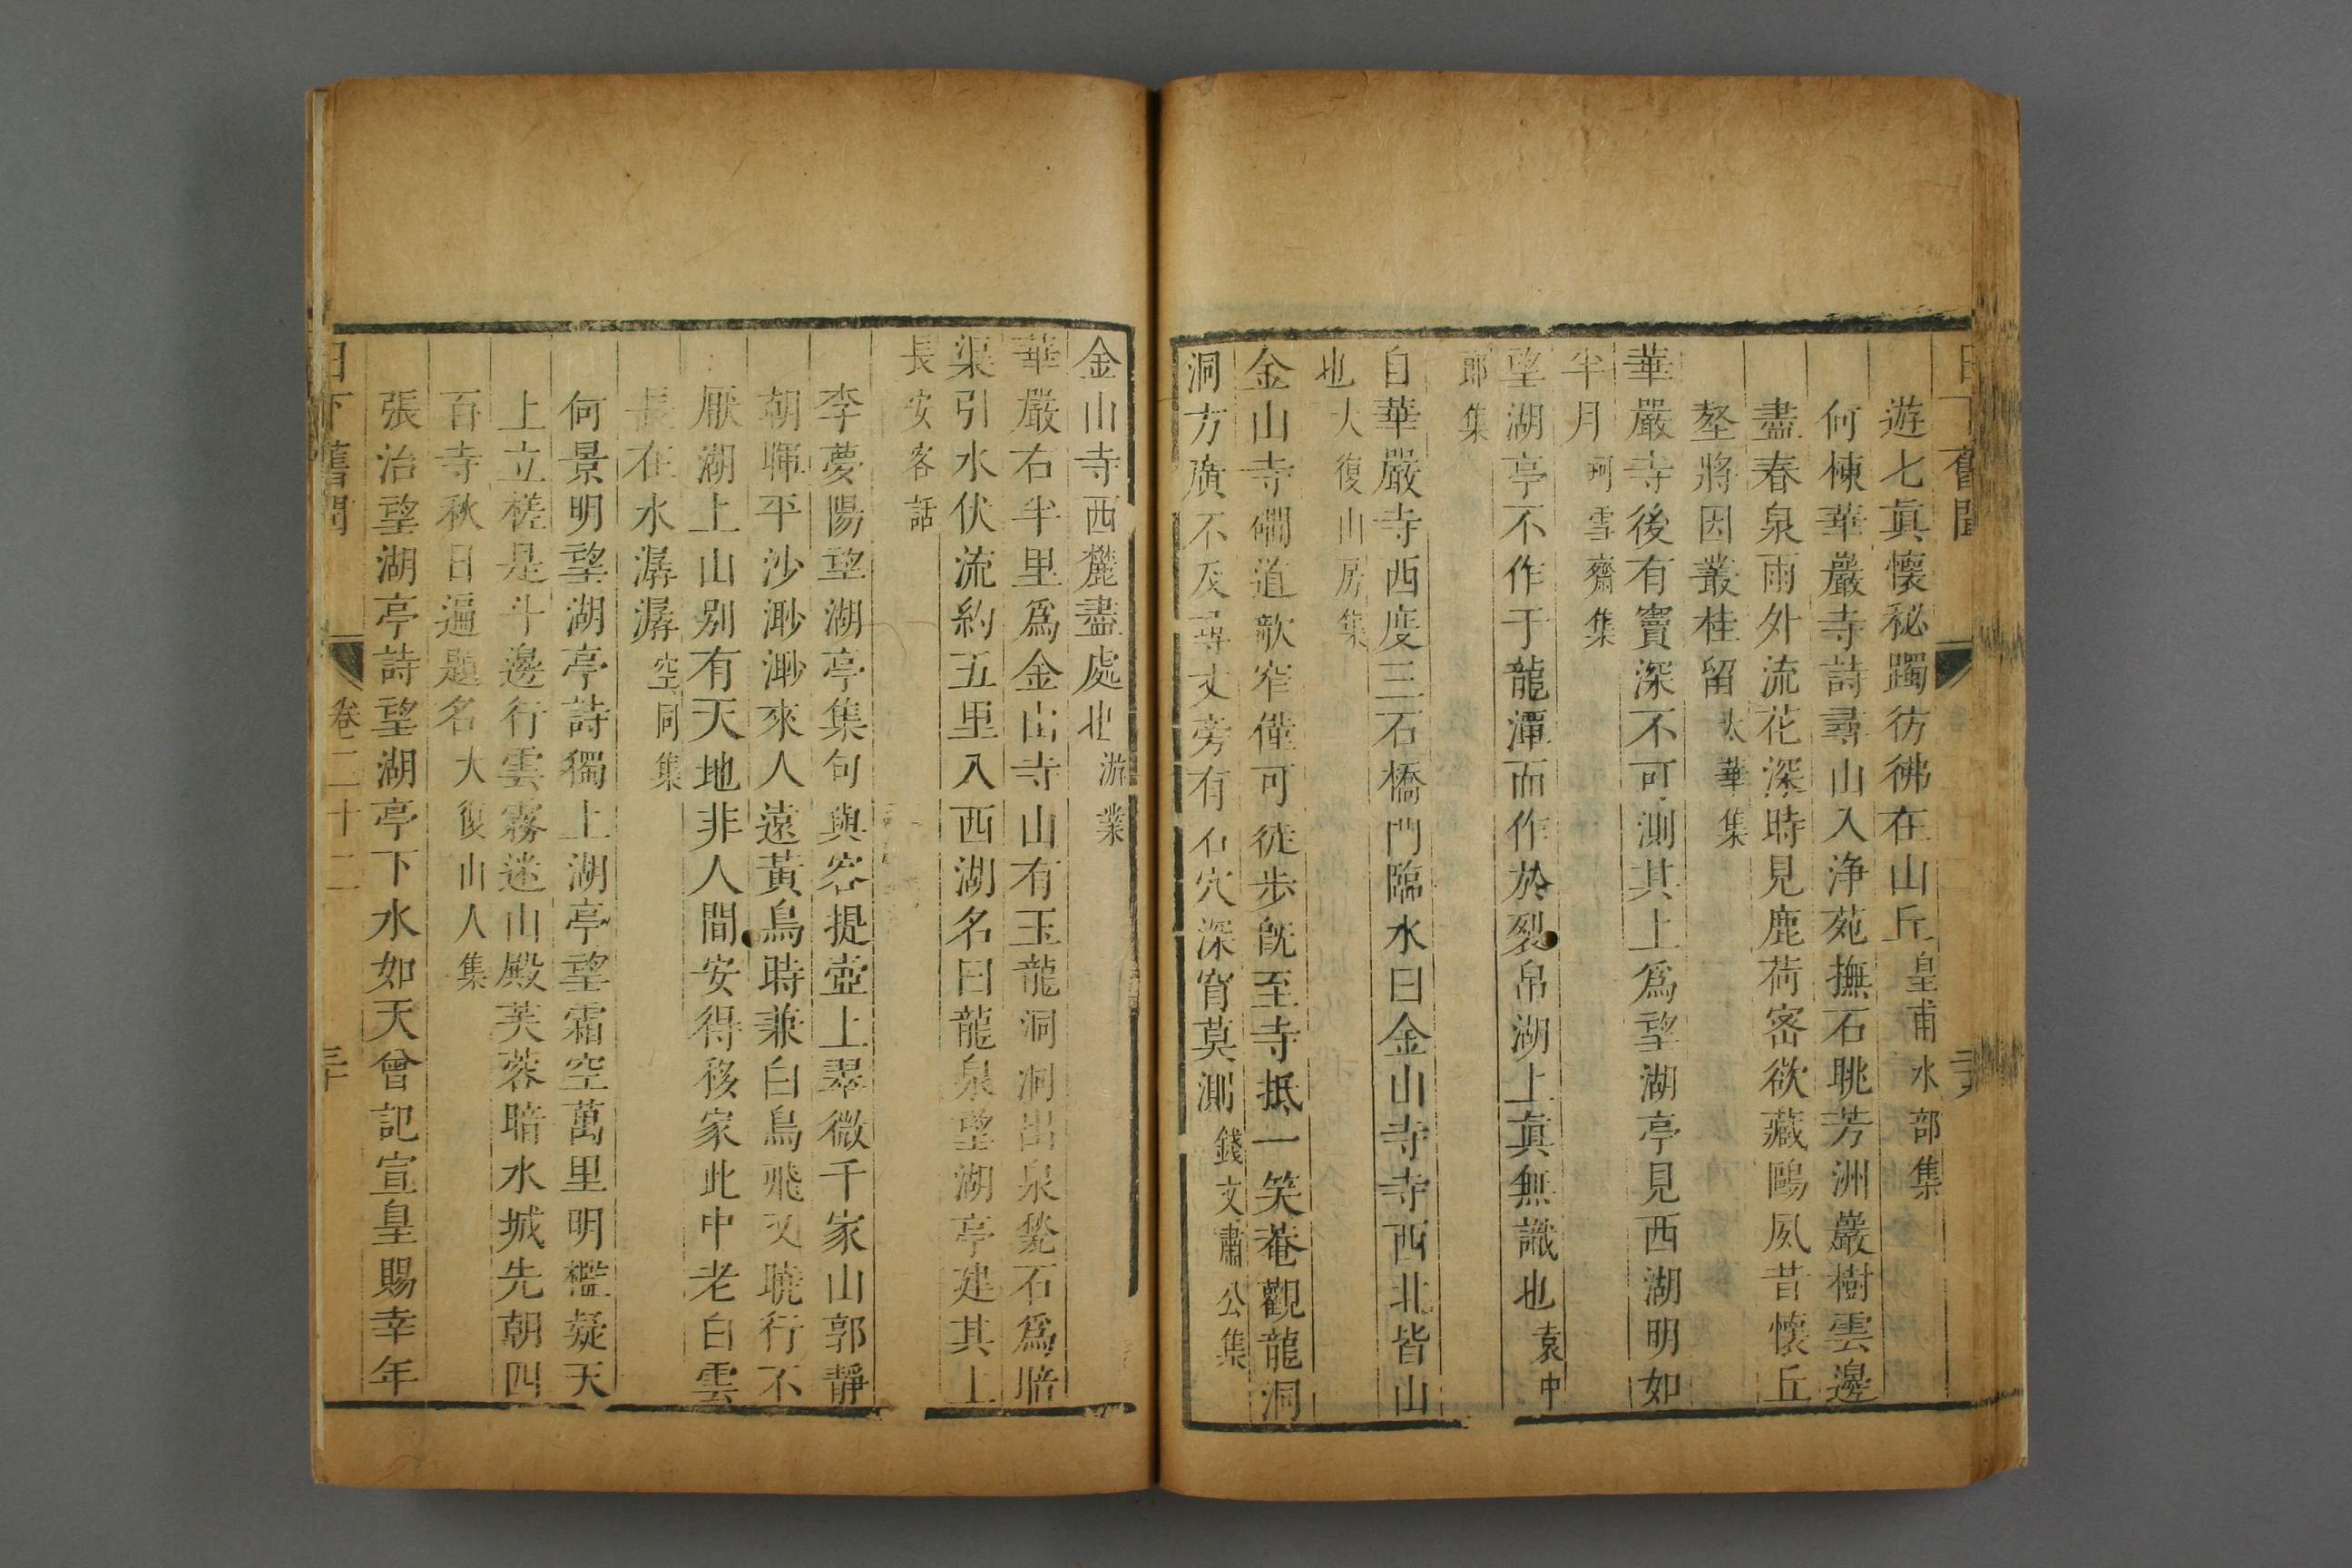 日下舊聞
遊七眞懷秘躅彷彿在山丘皇甫水部集
何棟華嚴寺詩尋山入淨苑撫石眺芳洲巖樹雲邊
盡春泉雨外流花深時見鹿荷密欲藏鷗夙昔懷丘
壑將因叢桂留太華集
華嚴寺後有竇深不可測其上爲望湖亭見西湖明如
半月珂雪齋集
望湖亭不作于龍潭而作於裂帛湖上眞無識也袁中
郎集
自華嚴寺西度三石橋門臨水曰金山寺寺西北皆山
也大復山房集
金山寺磵道欹窄僅可徒步旣至寺抵一笑菴觀龍洞
洞方廣不及尋丈旁有石穴深窅莫測錢文肅公集
金山寺西麓盡處北游業
華嚴右半里爲金山寺山有玉龍洞洞出泉甃石爲暗
渠引水伏流約五里入西湖名曰龍泉望湖亭建其上
長安客話
李夢陽望湖亭集句與客提壺上翠微千家山郭靜
朝暉平沙渺渺來人遠黃鳥時兼白鳥飛又曉行不
厭湖上山別有天地非人間安得移家此中老白雲
長在水潺潺空同集
何景明望湖亭詩獨上湖亭望霜空萬里明檻疑天
上立槎是斗邊行雲霧迷山殿芙蓉暗水城先朝四
百寺秋日遍題名大復山人集
張治望湖亭詩望湖亭下水如天曾記宣皇賜幸年
日下舊聞 卷二十二 三十